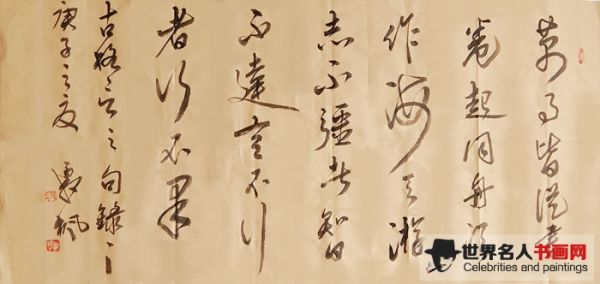 萬事皆從書
卷起同舟
作海天游
志不彊者智
不達言不
者行不果
古格言之句錄于
庚子之夏
世界名人书画网
Celebrities and paintings